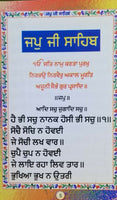 ਜਪੁ ਜੀ ਸਾਹਿਬ
ੴ ਸਤਿ ਨਾਮੁ ਕਰਤਾ ਪੁਰਖੁ
ਨਿਰਭਉ ਨਿਰਵੈਰੁ ਅਕਾਲ ਮੂਰਤਿ
ਅਜੂਨੀ ਸੈਭੰ ਗੁਰ ਪ੍ਰਸਾਦਿ॥
॥ਜਪੁ॥
ਆਦਿ ਸਚੁ ਜੁਗਾਦਿ ਸਚੁ॥
ਹੈ ਭੀ ਸਚੁ ਨਾਨਕ ਹੋਸੀ ਭੀ ਸਚੁ ॥੧॥
ਸੋਚੈ ਸੋਚਿ ਨ ਹੋਵਈ
ਜੇ ਸੋਚੀ ਲਖ ਵਾਰ॥
ਚੁਪੈ ਚੁਪ ਨ ਹੋਵਈ
ਜੇ ਲਾਇ ਰਹਾ ਲਿਵ ਤਾਰ॥
ਭੁਖਿਆ ਭੁਖ ਨ ਉਤਰੀ